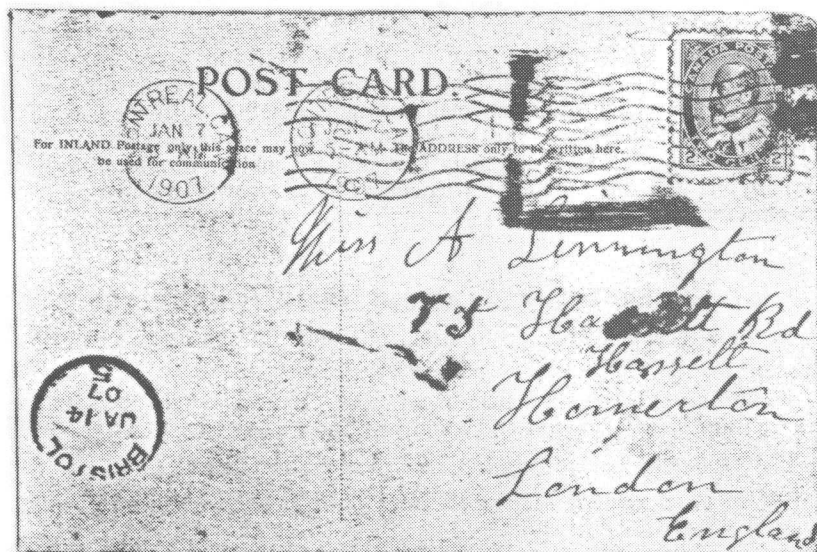 POST CARD.
MONTREAL, CA
JAN 7
1907
For INLAND Postage only this space may now
be used for communication
The ADDRESS only to be written here.
CANADA POSTAGE
2 TWO CENTS 2
Miss A Linnington
75 Ha ett Rd
Hassett
Homerton
London
England
BRISTOL
JA 14
07
5